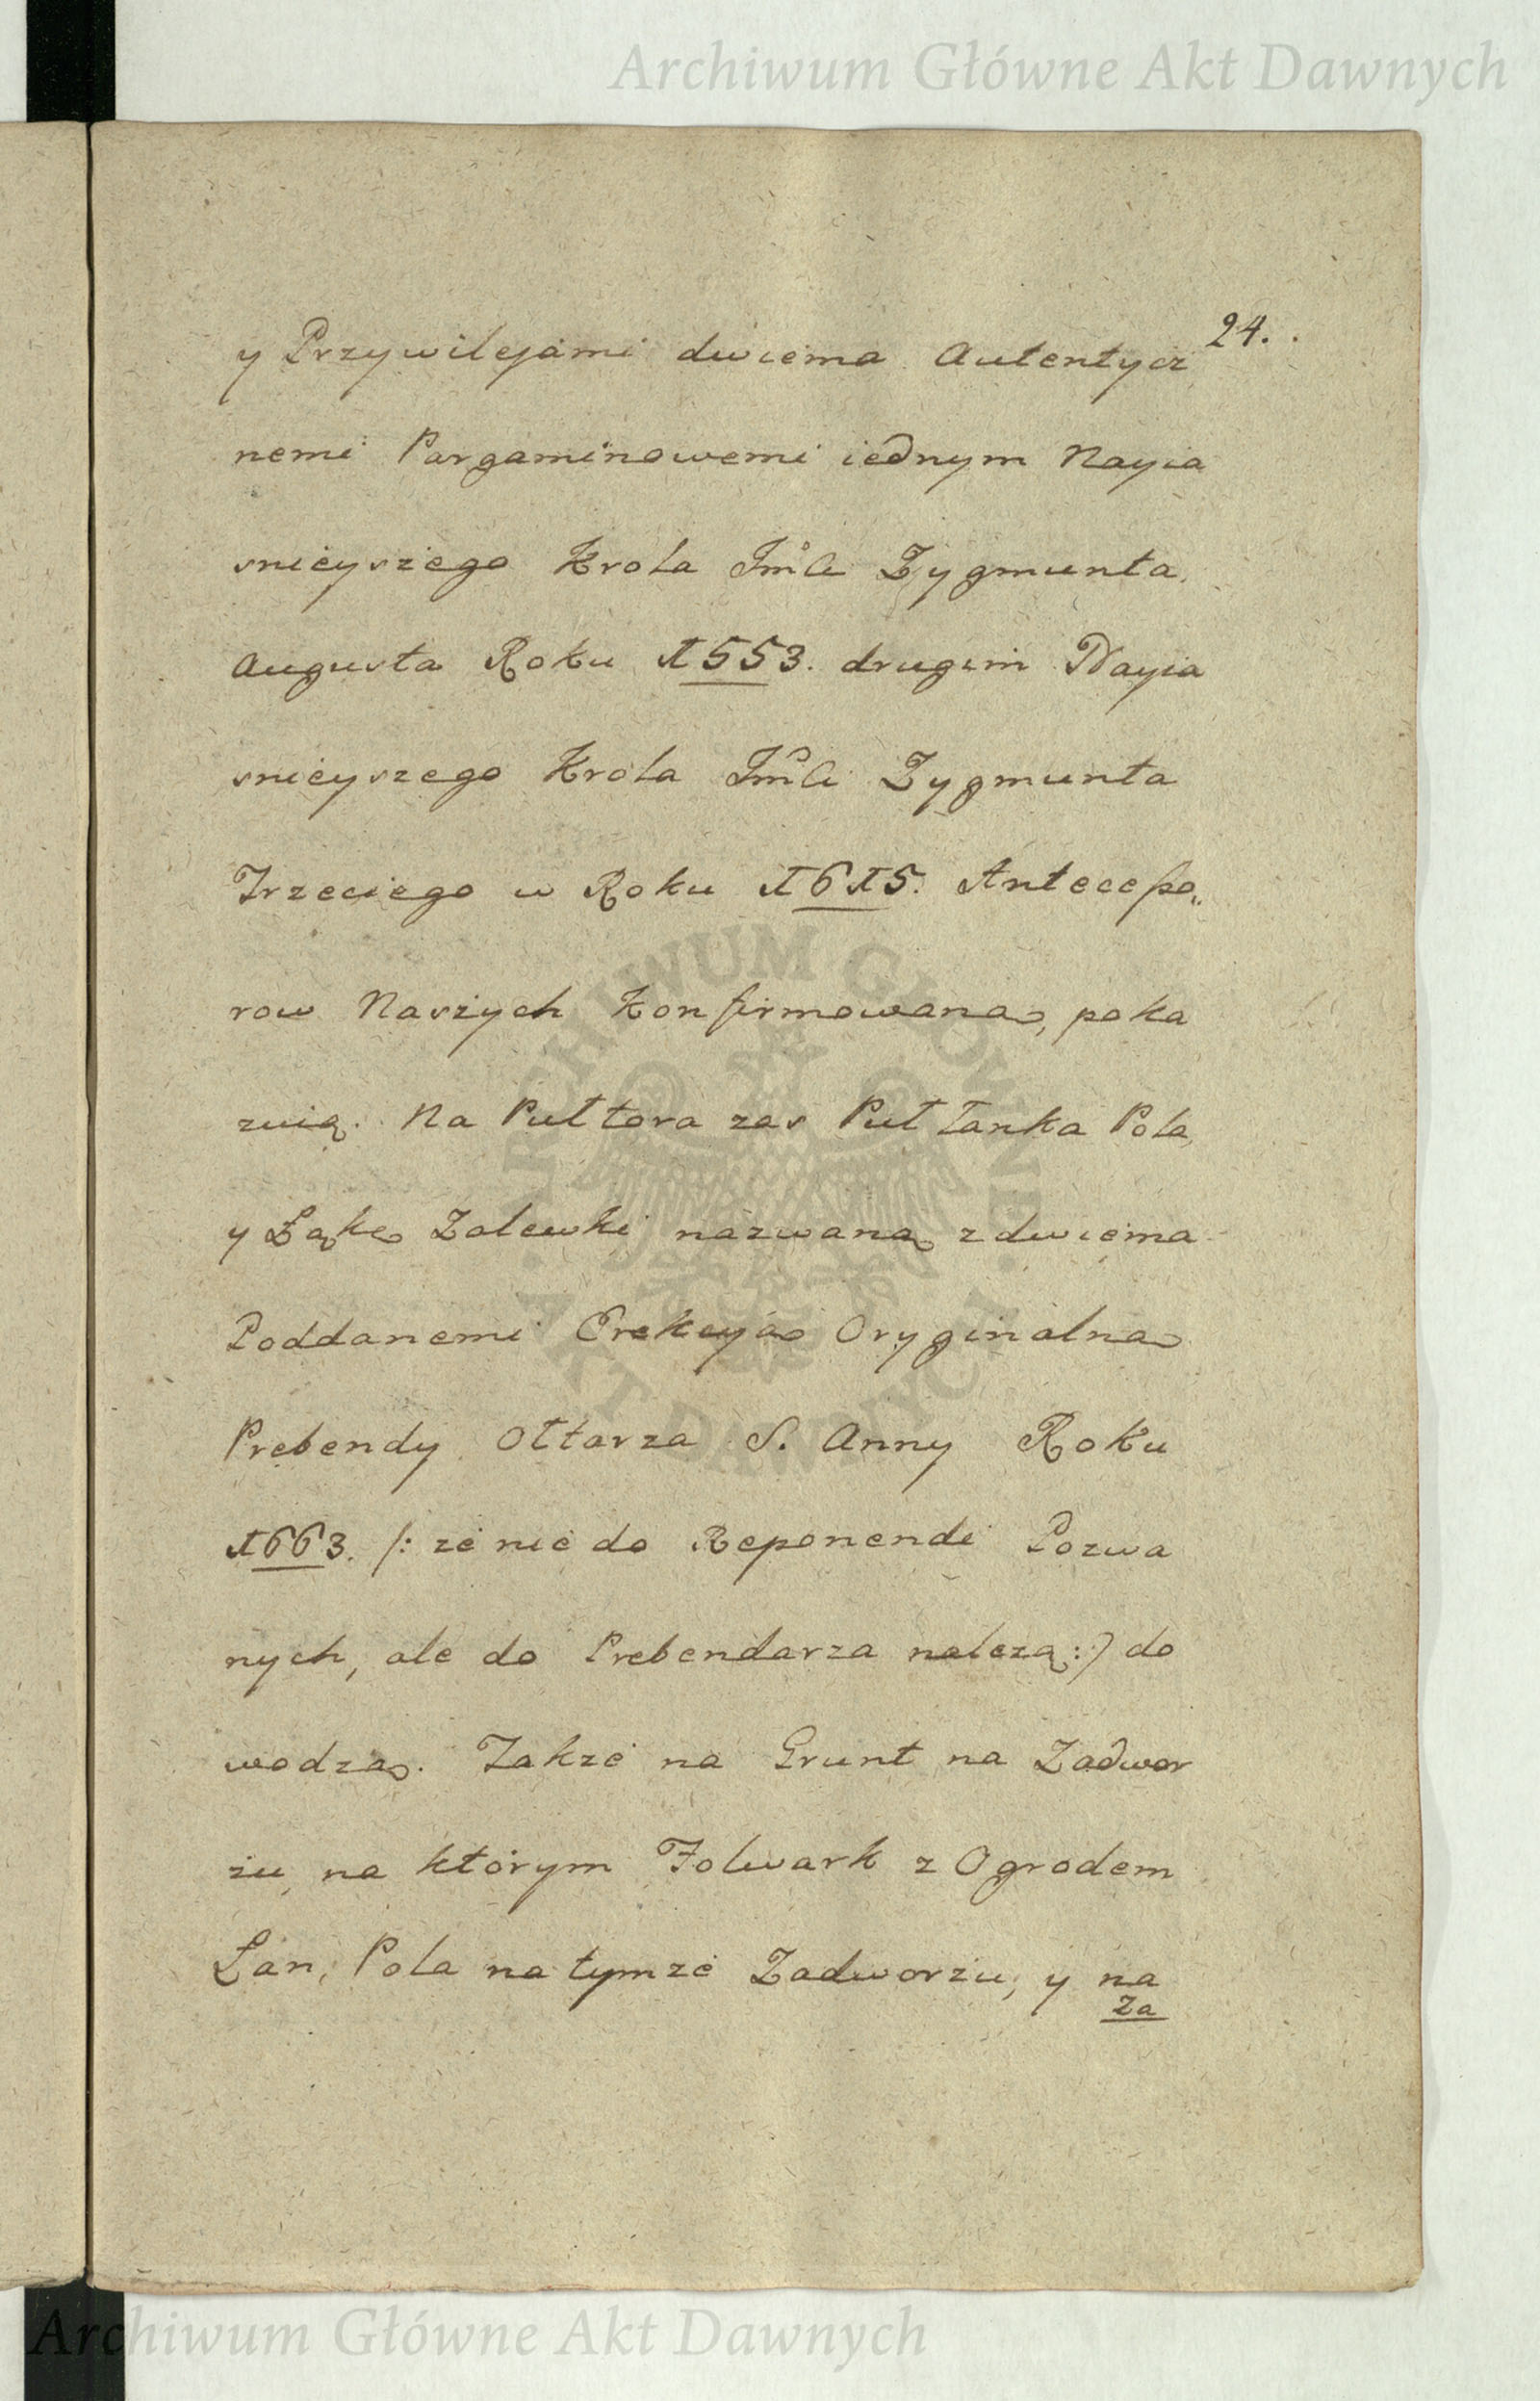 Archiwum Główne Akt Dawnych
24.
y Przywilejami dwiema Autentycz
nemi Pargaminowemi iednym Nayia
snieyszego Krola Jmci Zygmunta
Augusta Roku 1553. drugim Nayia
snieyszego Krola Jmci Zygmunta
Trzeciego w Roku 1615. Antecesso„
row Naszych Konfirmowaną, poka
zuią. Na Pułtora zas Put Łanka Pola,
y Łąkę Zalewki nazwaną z dwiema
Poddanemi Erekcyią Oryginalną
Prebendy Ołtarza S. Anny Roku
1663. /: że nie do Reponendi Pozwa
nych, ale do Prebendarza należą :/ do
wodzą. Także na Grunt na Zadwor
żu na którym Folwark z Ogrodem
Łan, Pola na tymże Zadworżu, y na
Za
ARCHIWUM GŁÓWNE
AKT DAWNYCH
Archiwum Główne Akt Dawnych